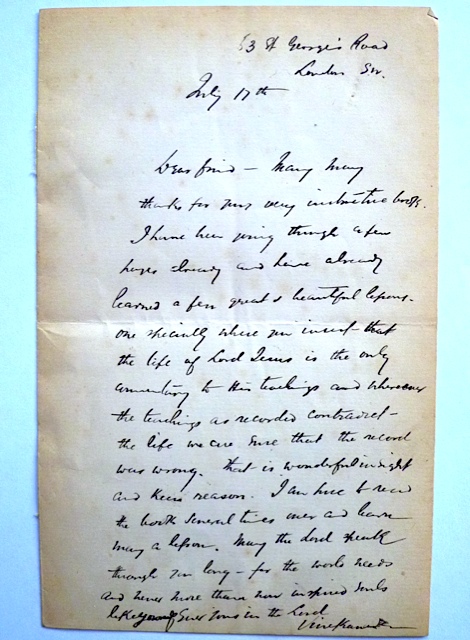 63 St Georges Road
London Sw.
July 17th
Dear friend — Many many
thanks for your very instructive book.
I have been going through a few
pages already and have already
learned a few great & beautiful lessons.
one specially where you insist that
the life of Lord Jesus is the only
commentary to His teachings and wherever
the teachings as recorded contradict
the life we are sure that the record
was wrong. that is wonderful insight
and keen reason. I am sure to read
the book several times over and learn
many a lesson. May the Lord speak
through you long — for the world needs
and never more than now inspired souls
like yourself Ever yours in the Lord
Vivekananda